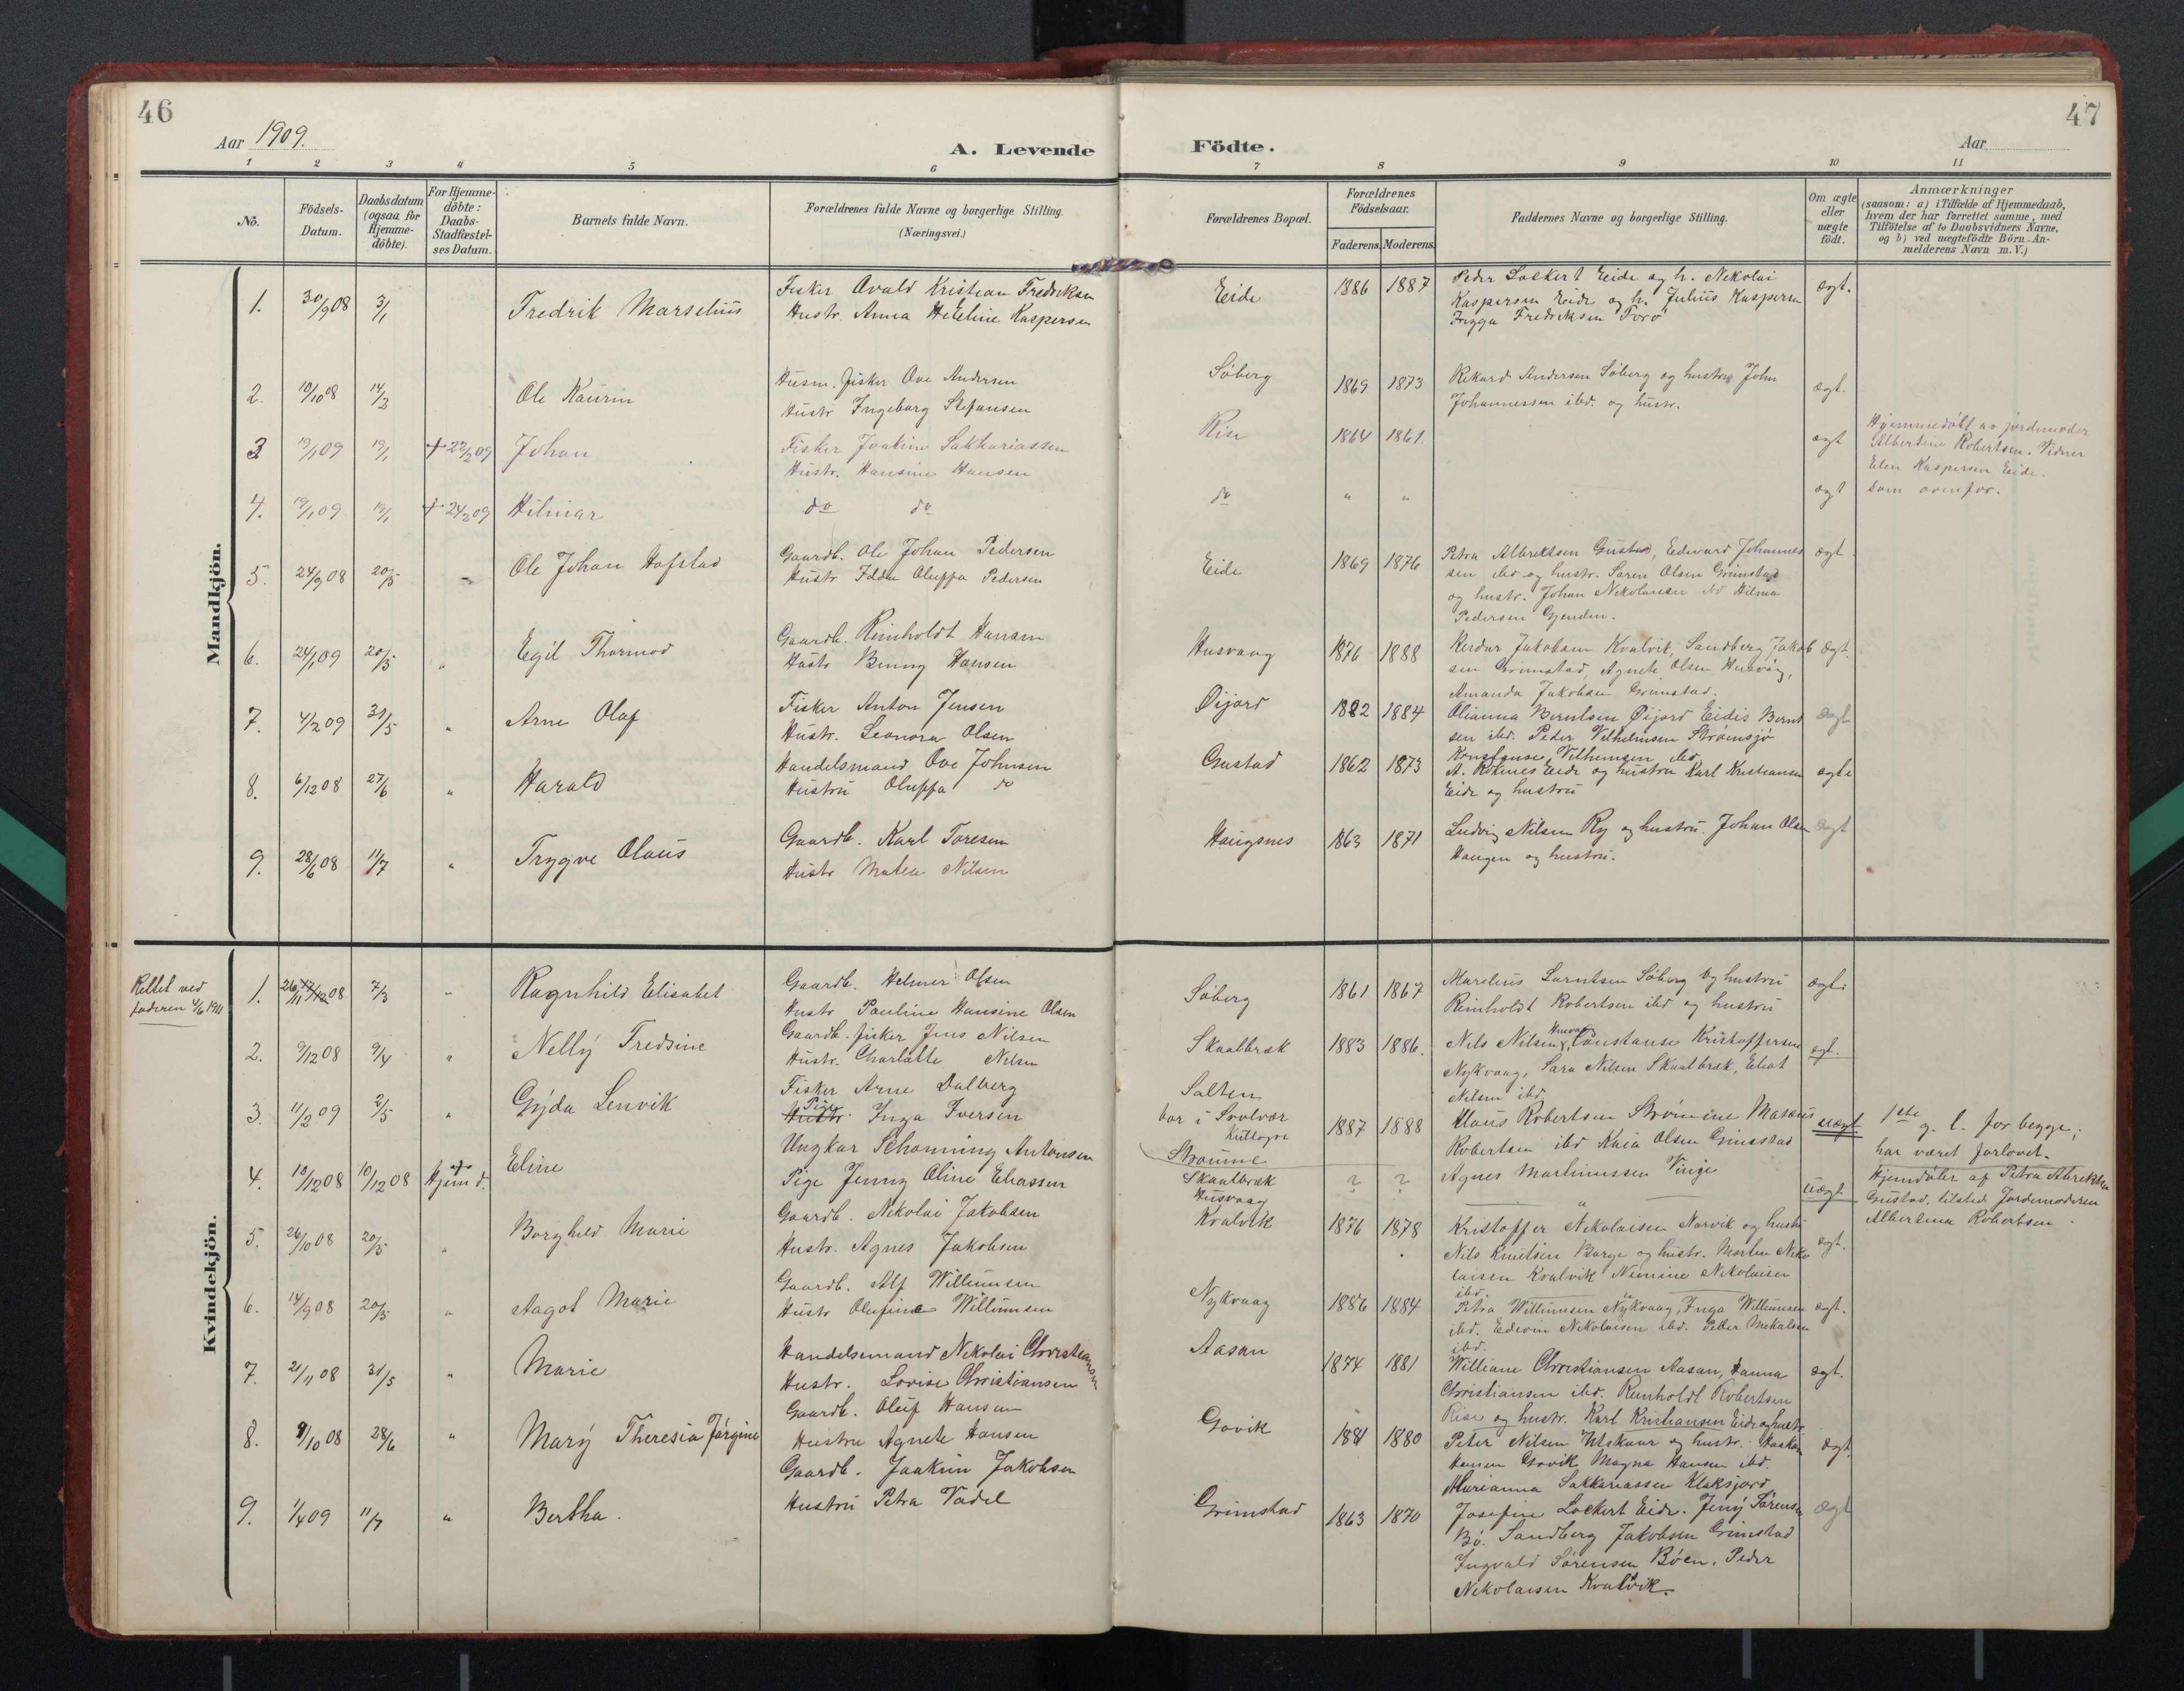 46
Aar 1909.
A. Levende
1 2 3 4 5 6
No. Födsels-Datum. Daabsdatum (ogsaa for Hjemme-döbte). For Hjemme-döbte: Daabs-Stadfæstel-ses Datum. Barnets fulde Navn. Forældrenes fulde Navne og borgerlige Stilling. (Næringsvei.)
Mandkjön.
1. 30/9 08 3/1 Fredrik Marselius Fisker Kristian Fredriksen
Hustr. Anna Kaspersen
2. 10/10 08 14/3 Ole Kaurin Husm. fisker Ove Andersen
Hustr Ingeborg Stefansen
3 19/1 09 19/1 + 22/2 09 Johan Fisker Joakim Sakkariassen
Hustr. Hansine Hansen
4. 19/1 09 19/1 + 24/2 09 Hilmar do do
5. 24/9 08 20/5 Ole Johan Hofstad Gaardb. Ole Johan Pedersen
Hustr Oluffa Pedersen
6. 24/1 09 20/5 " Egil Thormod Gaardb. Reinholdt Hansen
Hustr Benny Hansen
7. 4/2 09 31/5 " Arne Olaf Fisker Anton Jensen
Hustr. Leonora Olsen
8. 6/12 08 27/6 " Harald Handelsmand Ove Johnsen
Hustru Oluffa do
9. 28/6 08 11/7 " Trygve Olaus Gaardb. Karl Toresen
Hustr Matea Nilsen
Kvindekjön.
Rettet ved
faderen 4/6 1911
1. 26/11 08 7/3 " Ragnhild Elisabet Gaardb. Helmer Olsen
Hustr Pauline Hansine Olsen
2. 9/12 08 9/4 " Nelly Fredsine Gaardb. fisker Jens Nilsen
Hustr. Charlotte Nilsen
3. 11/2 09 2/5 " Gyda Lenvik Fisker Arne Dalberg
Hustr. Pige Inga Iversen
4. 10/12 08 10/12 08 Hjemd. Eline Ungkar Schønning Antonsen
Pige Jenny Oline Eliassen
5. 26/10 08 20/5 " Borghild Marie Gaardb. Nikolai Jakobsen
Hustr. Agnes Jakobsen
6. 14/9 08 20/5 " Aagot Marie Gaardb. Alf Willumsen
Hustr Olufine Willumsen
7. 21/11 08 31/5 " Marie Handelsmand Nikolai Christiansen
Hustr. Lovise Christiansen
8. 9/10 08 28/6 " Mary Theresia Jörgine Gaardb. Oluf Hansen
Hustru Agnete Hansen
9. 1/4 09 11/7 " Bertha. Gaardb. Joakim Jakobsen
Hustru Petra Vadel
47
Födte.
Aar
7 8 9 10 11
Forældrenes Bopæl. Forældrenes Födselsaar. Faderens. Moderens. Faddernes Navne og borgerlige Stilling. Om ægte eller uægte födt. Anmærkninger (saasom: a) i Tilfælde af Hjemmedaab, hvem der har forrettet samme, med Tilföielse af to Daabsvidners Navne, og b) ved uægtefödte Börn An-melderens Navn m. V.)
Eide 1886 1887 Peder Lockert Eide og h. Nikolai ægt.
Kaspersen Eide og h. Julius Kaspersen
Fredriksen Forø
Søberg 1869 1873 Rikard Andersen Søberg og hustru John ægt.
Johannessen ibd. og hustr.
Rise 1864 1861. ægt Hjemmedøbt av jordemoder
Albertine Robertsen. Vidner
Elen Kaspersen Eide.
do " " ægt som ovenfor.
Eide 1869 1876 Petra Albrektsen Gustad, Edvard Johannes ægt.
sen ibd og hustr. Søren Olsen Grimstad
og hustr. Johan Nikolaisen Hilma
Pedersen Gjenden.
Husvaag 1876 1888 Jakobsen Kvalvik, Sandberg Jakob ægt.
sen Grimstad, Agnete Olsen Husvåg,
Amanda Jakobsen Grimstad.
Øijord 1882 1884 Olianna Berntsen Øijord Eidis Bernt ægt
sen ibd. Peder Vilhelmsen Strømsjø
Konstanse Vilhemsen ibd
Gustad 1862 1873 A. Rones Eide og hustru Karl Kristiansen ægte
Eide og hustru
Haugsnes 1863 1871 Ludvig Nilsen Ry og hustru. Johan Olsen ægt
Haugen og hustru.
Søberg 1861 1867 Marelius Larntsen Søberg og hustru ægt.
Reinholdt Robertsen ibd og hustru
Skaalbræk 1883 1886. Nils Nilsen Husvaag, Constanse Kristoffersen ægt.
Nykvaag, Sara Nilsen Skaalbræk, Eliot
Nilsen ibd
Salten
bor i Svolvær 1887 1888 Klaus Robertsen Strømme Matæus uægt. 1ste g. l. for begge;
Robertsen ibd Kaia Olsen Grimstad har været forlovet.
Strømme
Skaalbræk ? ? Agnes Martinussen Vinje uægt Hjemdøbt af Petra Albrektsen
Husvaag Gustad, tilsted Jordemoderen
Albertina Robertsen.
Kvalvik 1876 1878 Kristoffer Nikolaisen Norvik og hustr ægt.
Nils Knutsen Barge og hustr. Morten Niko
laisen Kvalvik Nikolaisen
ibd.
Nykvaag 1886 1884 Petra Willumsen Nykvaag, Inga Willumsen ægt.
ibd. Edevin Nikolaisen ibd. Peder Mekalsen
ibd.
Aasan 1874 1881 William Christiansen Aasan, Hanna ægt.
Christiansen ibd. Reinholdt Robertsen
Rise og hustr. Karl Kristiansen Eide og hustr
Govik 1881 1880 Peter Nilsen Utskaar og hustr. Haakon ægt.
Hansen Govik Magna Hansen ibd.
Marianna Sakkariassen Klaksjord
Grimstad 1863 1870 Josefine Lockert Eide. Jeny Sørensen ægt
Bø. Sandberg Jakobsen Grimstad
Ingvald Sørensen Bøen. Peder
Nikolaisen Kvalvik.